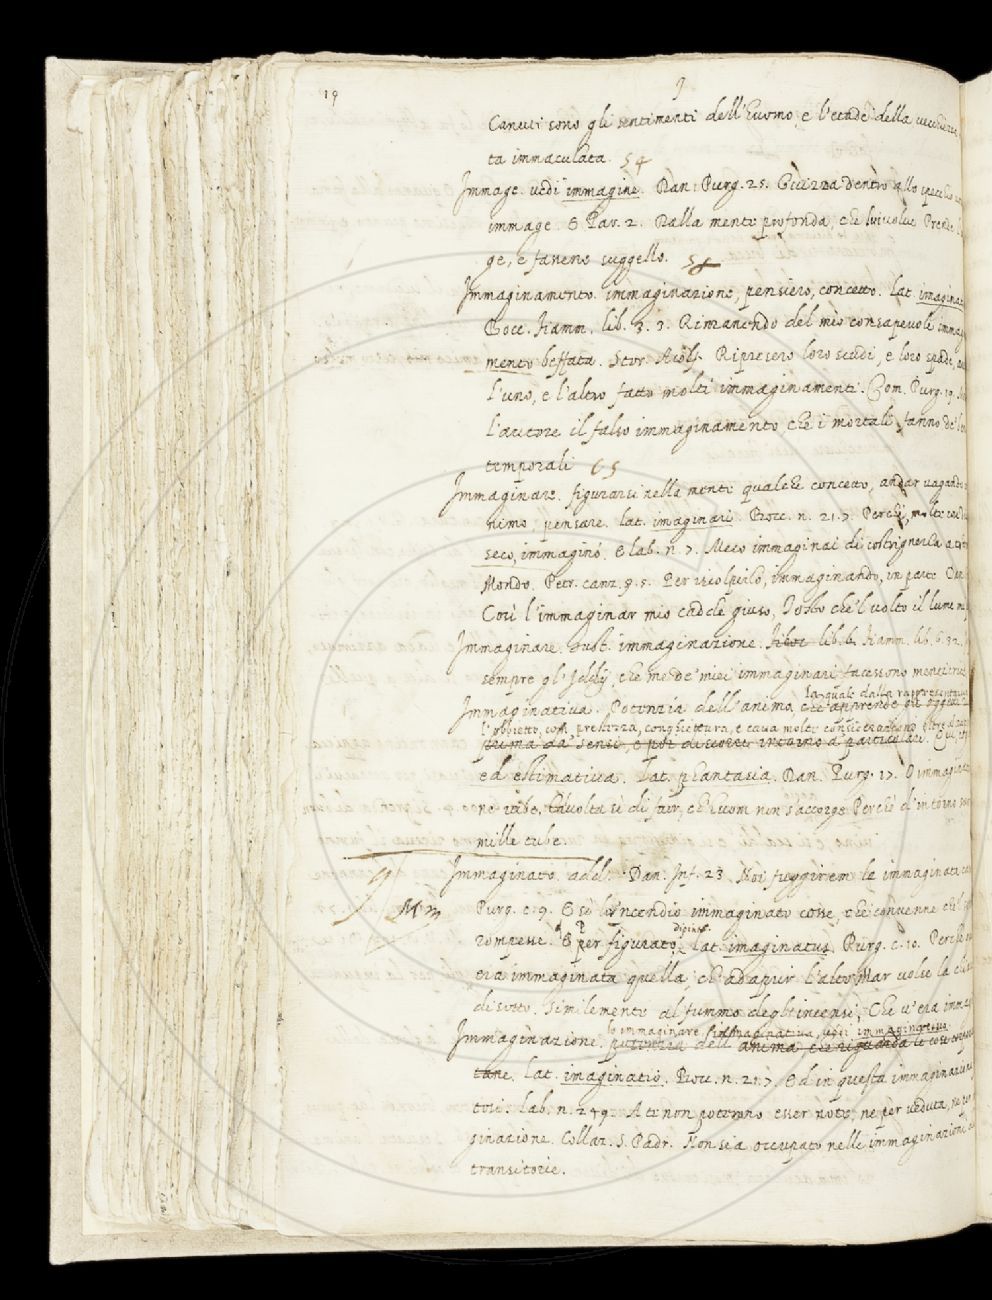 19
J
Canuti sono gli sentimenti dell'huomo, e l'etade della
ta immaculata. 54
Immage. vedi immagine. Dan. Purg. 25. Guizza dentro allo specchio
immage. E Par. 2. Dalla mente profonda, che lui volve Prende
ge, e fassene suggello. 54
Immaginamento. immaginazione, pensiero, concetto. Lat.
Bocc. fiamm. lib. 3. 3. Rimanendo del mio consapevole
mento beffata. Stor. Aiolf. Ripresero loro scudi, e loro spade,
l'uno, e l'altro fatto molti immaginamenti. Com. Purg. 19.
l'autore il falso immaginamento, che i mortali fanno de'
temporali 65
Immaginare. figurarsi nella mente qualche concetto, andar vagando
nimo, pensare. Lat. imaginari. Bocc. n. 21. 7. Perchè, molte cose
seco, immaginò. E lab. n. 7. Meco immaginai di costrignerla
Mondo. Petr. canz. 9. 5. Per iscolpirlo, immaginando, in parte
Così l'immaginar mio cadde giuso, Tosto che'l volto il lume
Immaginare. sust. immaginazione. lib. 6. fiamm. lib. 6.
sempre gl'Iddij, che me de' miei immaginari facessono
la quale dalla
Immaginativa. Potenzia dell'animo, che apprende gli oggetti
l'obbietto, con prestezza, conghiettura, e cava molte considerazioni oltre
prima da' sensi, e poi discorre intorno a' particulari.
ed estimativa. Lat. phantasia. Dan. Purg. 17. O immaginativa
ne rube. talvolta sì di fuor, ch'huom non s'accorge Perchè d'intorno
mille tube.
Immaginato. add. Dan. Inf. 23. Noi fuggirem le immaginata
Purg. c. 9. E sì lo'ncendio immaginato cosse, che convenne che'l
dipinto.
rompesse. E per figurato. Lat. imaginatus. Purg. c. 10. Perchè
era immaginata quella, ch'ad aprir l'alto Mar volse la
di sotto. Similemente al fummo degl'incensi, Che v'era
lo immaginare, l'immaginativa, vedi immaginativa
Immaginazione. potenzia dell'anima che riguarda le cose
tane. Lat. imaginatio. Bocc. n. 21. 7. Ed in questa immaginazione
Lab. n. 249. A te non poterono esser note, ne per veduta, ne per
ginazione. Collaz. S. Padr. Non sia occupato nelle immaginazioni
transitorie.